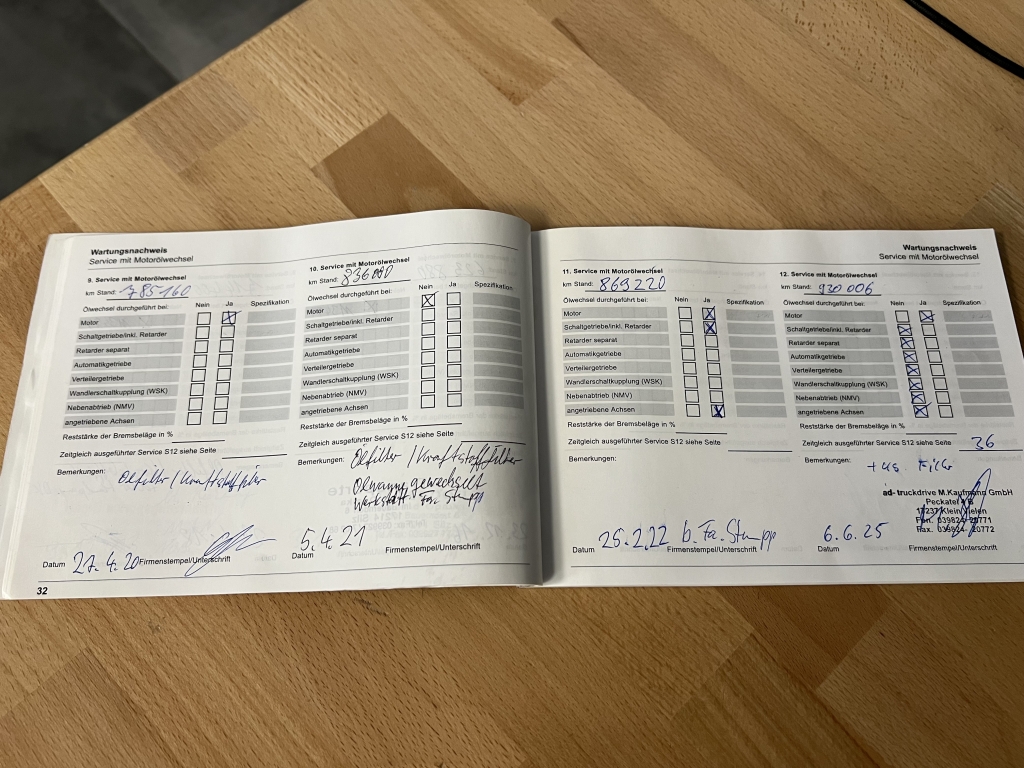 Wartungsnachweis
Service mit Motorölwechsel
9. Service mit Motorölwechsel
km Stand: 785160
Ölwechsel durchgeführt bei: Nein Ja Spezifikation
Motor
Schaltgetriebe/inkl. Retarder
Retarder separat
Automatikgetriebe
Verteilergetriebe
Wandlerschaltkupplung (WSK)
Nebenabtrieb (NMV)
angetriebene Achsen
Reststärke der Bremsbeläge in %
Zeitgleich ausgeführter Service S12 siehe Seite
Bemerkungen:
Ölfilter / Kraftstofffilter
Datum 27.4.20 Firmenstempel/Unterschrift
32
10. Service mit Motorölwechsel
km Stand:
Ölwechsel durchgeführt bei: Nein Ja Spezifikation
Motor
Schaltgetriebe/inkl. Retarder
Retarder separat
Automatikgetriebe
Verteilergetriebe
Wandlerschaltkupplung (WSK)
Nebenabtrieb (NMV)
angetriebene Achsen
Reststärke der Bremsbeläge in %
Zeitgleich ausgeführter Service S12 siehe Seite
Bemerkungen: Ölfilter / Kraftstofffilter
Ölwanne gewechselt
Werkstatt Fa. Stumpp
5.4.21
Datum Firmenstempel/Unterschrift
Wartungsnachweis
Service mit Motorölwechsel
11. Service mit Motorölwechsel
km Stand: 869220
Ölwechsel durchgeführt bei: Nein Ja Spezifikation
Motor
Schaltgetriebe/inkl. Retarder
Retarder separat
Automatikgetriebe
Verteilergetriebe
Wandlerschaltkupplung (WSK)
Nebenabtrieb (NMV)
angetriebene Achsen
Reststärke der Bremsbeläge in %
Zeitgleich ausgeführter Service S12 siehe Seite
Bemerkungen:
Datum 25.2.22 b. Fa. Stumpp
Firmenstempel/Unterschrift
12. Service mit Motorölwechsel
km Stand: 930 006
Ölwechsel durchgeführt bei: Nein Ja Spezifikation
Motor
Schaltgetriebe/inkl. Retarder
Retarder separat
Automatikgetriebe
Verteilergetriebe
Wandlerschaltkupplung (WSK)
Nebenabtrieb (NMV)
angetriebene Achsen
Reststärke der Bremsbeläge in %
Zeitgleich ausgeführter Service S12 siehe Seite 36
Bemerkungen:
ad- truckdrive M.Kaufmann GmbH
Peckatel
17237 Klein Vielen
Fon. 039824 20771
Fax. 039824 20772
6.6.25
Datum Firmenstempel/Unterschrift